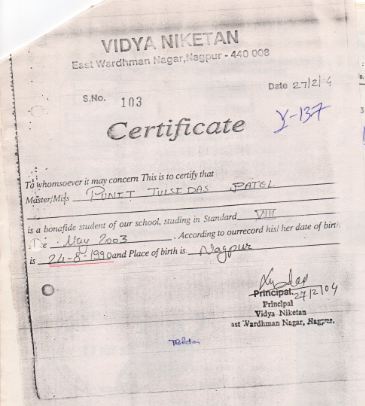 VIDYA NIKETAN
East Wardhman Nagar, Nagpur - 440 008
Date 27/2/04
S.No. 103
Y-137
Certificate
To whomsoever it may concern This is to certify that
Master/Miss PUNIT TULSIDAS PATEL
is a bonafide student of our school, studing in Standard VIII
May 2003 . According to ourrecord his/her date of birth
is 24-8-1990 and Place of birth is Nagpur
Principal 27/2/04
Principal
Vidya Niketan
ast Wardhman Nagar, Nagpur.